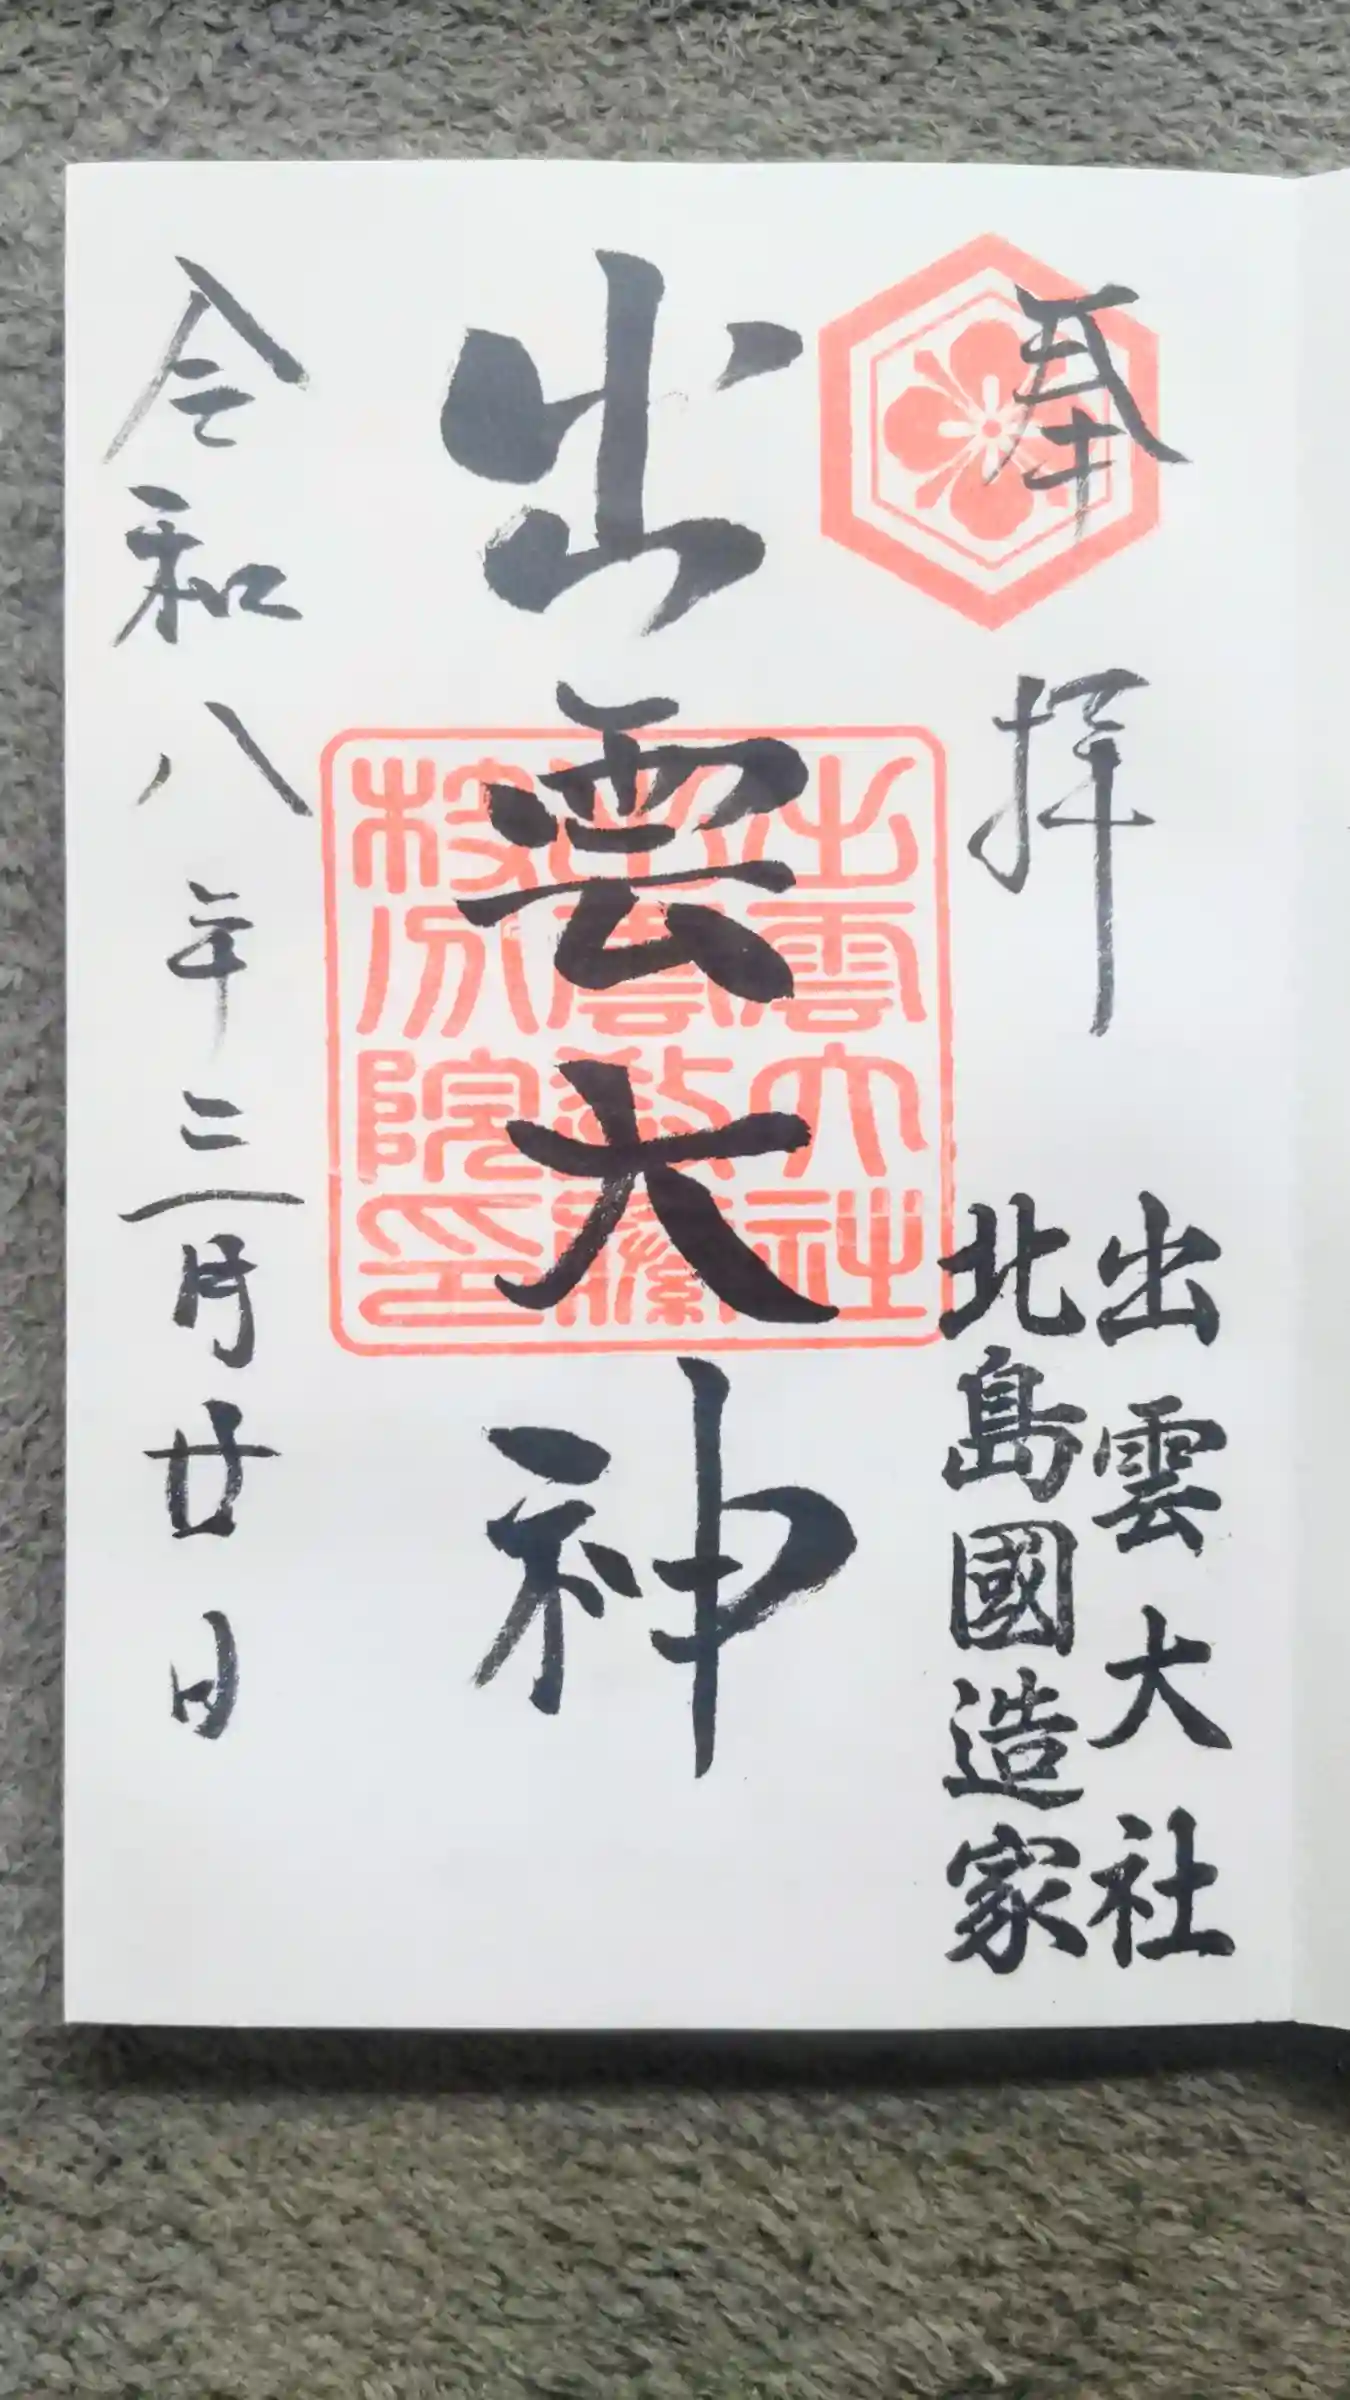 奉拝
出雲大社
北島國造家
出雲大神
出雲大社
出雲教藤
枝分院印
令和八年三月廿日